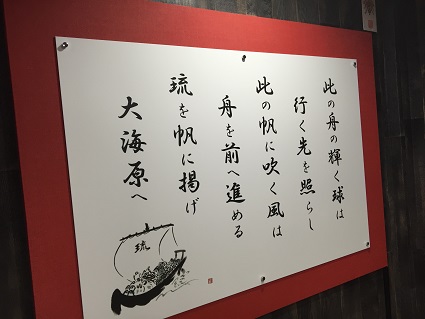 此の舟の輝く球は
行く先を照らし
此の帆に吹く風は
舟を前へ進める
琉を帆に揚げ
大海原へ
琉